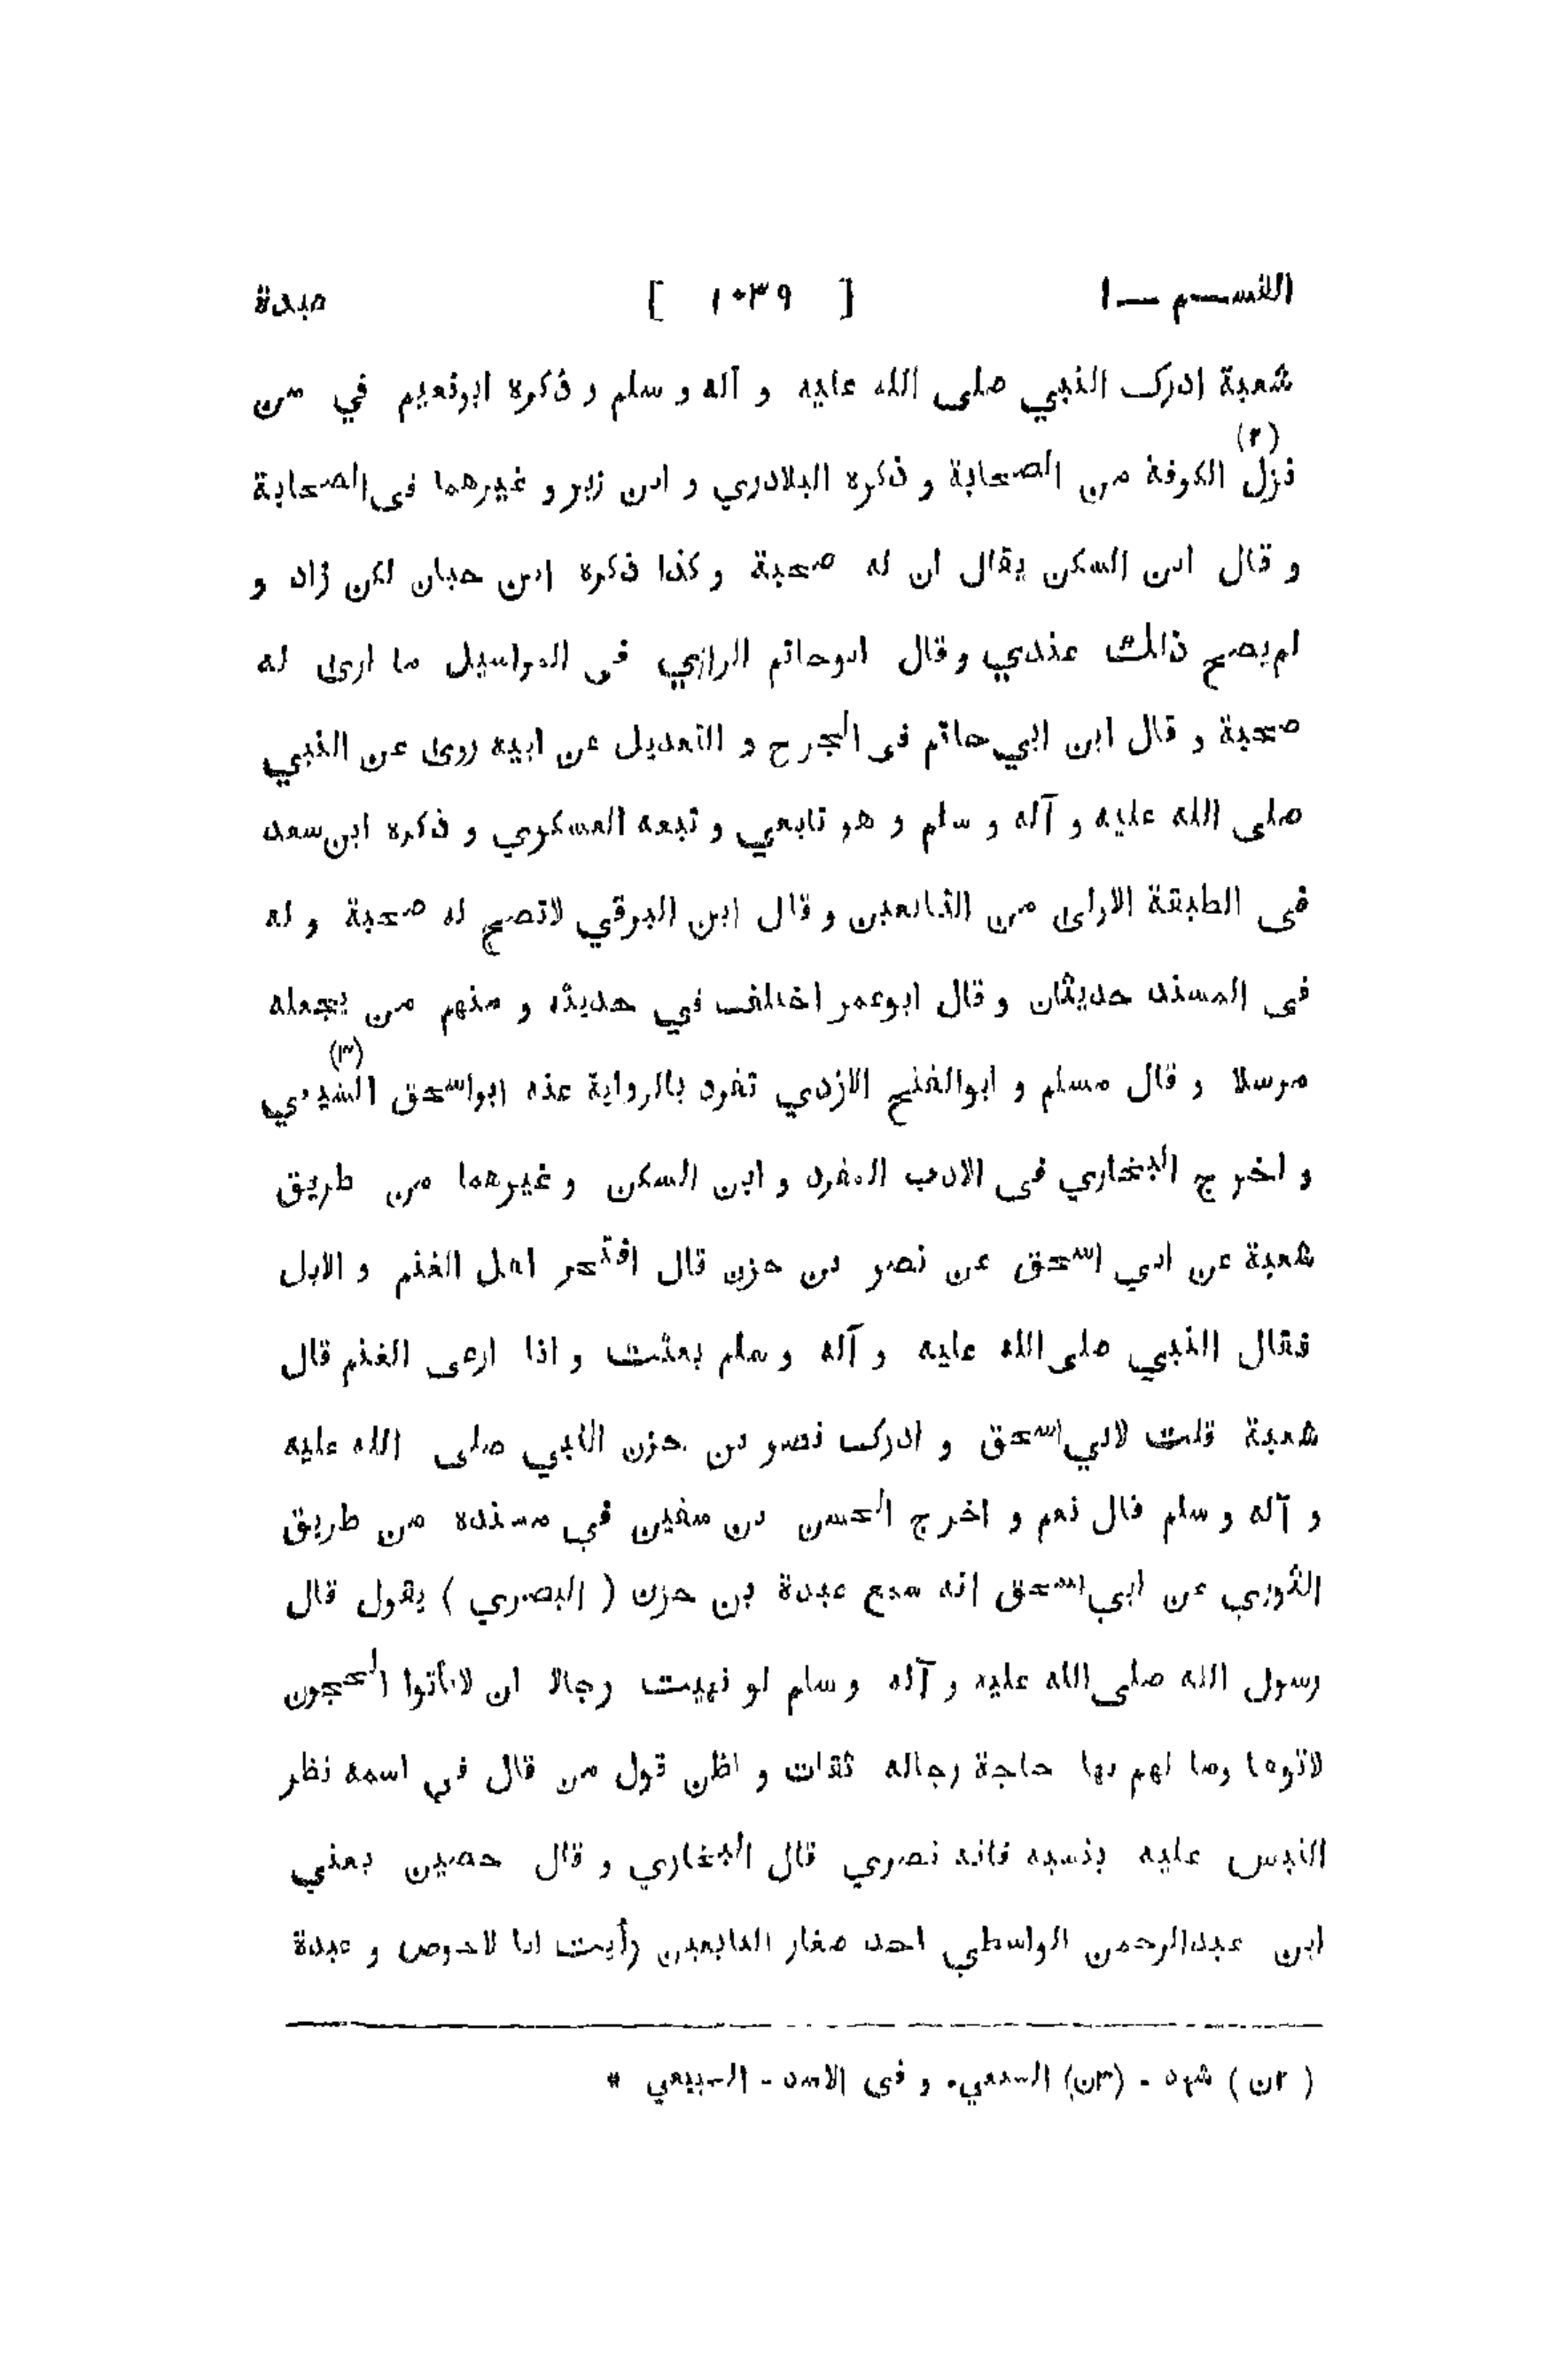 القسم — ا [ ١٠٣٩ ] عبدة
شعبة ادرك النبي صلى الله عليه و آله و سلم و ذكره ابونعيم في من
(٢)
نزل الكوفة من الصحابة و ذكره البلادري و ابن زبر و غيرهما فى الصحابة
و قال ابن السكن يقال ان له صحبة و كذا ذكره ابن حبان لكن زاد و
لم يصح ذلك عندي و قال ابوحاتم الرازي فى المراسيل ما ارى له
صحبة و قال ابن ابي حاتم فى الجرح و التعديل عن ابيه روى عن النبي
صلى الله عليه و آله و سلم و هو تابعي و تبعه العسكري و ذكره ابن سعد
فى الطبقة الاولى من التابعين و قال ابن البرقي لاتصح له صحبة و له
فى المسند حديثان و قال ابوعمر اختلف في حديثه و منهم من يجعله
(٣)
مرسلا و قال مسلم و ابوالفتح الازدي تفرد بالرواية عنه ابواسحق
و اخرج البخاري فى الادب المفرد و ابن السكن و غيرهما من طريق
شعبة عن ابي اسحق عن نصر بن حزن قال افتخر اهل الغنم و الابل
فقال النبي صلى الله عليه و آله و سلم بعثت و انا ارعى الغنم قال
شعبة قلت لابي اسحق و ادرك نصر بن حزن النبي صلى الله عليه
و آله و سلم قال نعم و اخرج الحسن بن سفين في مسنده من طريق
الثوري عن ابي اسحق انه سمع عبدة بن حزن ( البصري ) يقول قال
رسول الله صلى الله عليه و آله و سلم لو نهيت رجالا ان لاياتوا الحجون
لاتوها وما لهم بها حاجة رجاله ثقات و اظن قول من قال في اسمه نظر
التبس عليه بنسبه فانه نصري قال البخاري و قال حصين يعني
ابن عبدالرحمن الواسطي احد صغار التابعين رأيت ابا لاحوص و عبدة
( ٢ن ) شهد - (٣ن) و فى الاسد - السبيعي *